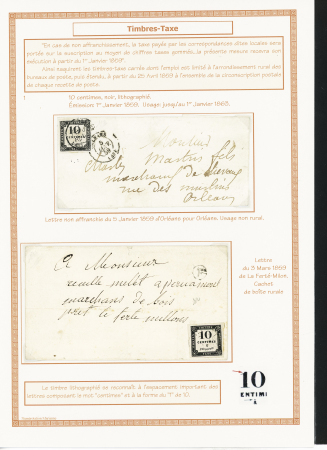 Timbres-Taxe
"En cas de non affranchissement, la taxe payée par les correspondances dites locales sera
portée sur la suscription au moyen de chiffres taxes gommés, la présente mesure recevra son
exécution à partir du 1er Janvier 1859".
Ainsi naquirent les timbres-taxe carrés dont l'emploi est limité à l'arrondissement rural des
bureaux de poste, puis étendu, à partir du 25 Avril 1859 à l'ensemble de la circonscription postale
de chaque recette de poste.
10 centimes, noir, lithographié.
Émission 1er Janvier 1859. Usage jusqu'au 1er Janvier 1863.
10
CENTIMES
Monsieur
Charles Martin fils
marchand de
rue des
Orléans
Lettre non affranchie du 5 Janvier 1859 d'Orléans pour Orléans. Usage non rural.
A Monsieur
marchans de bois
10
CENTIMES
Lettre
du 3 Mars 1859
de La Ferté-Milon.
Cachet
de boîte rurale
Le timbre lithographié se reconnaît à l'espacement important des
lettres composant le mot "centimes" et à la forme du "1" de 10.
10
ENTIMI
à